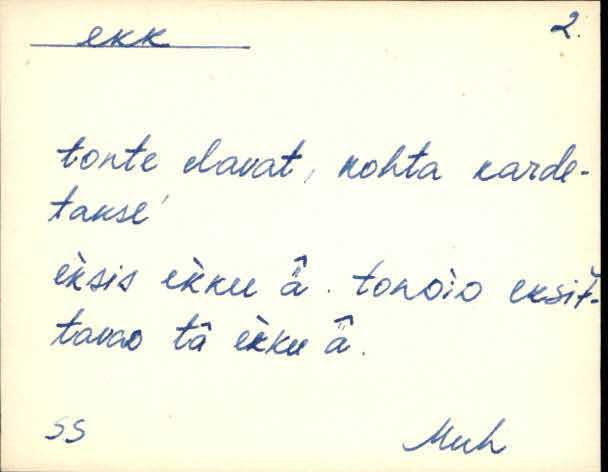 ekk
2.
tonte elavat, kohta karde-
takse'
èksis èkku ä̂. tonoìo eksit̆-
tavao tâ èkku ä̂.
SS
Muh